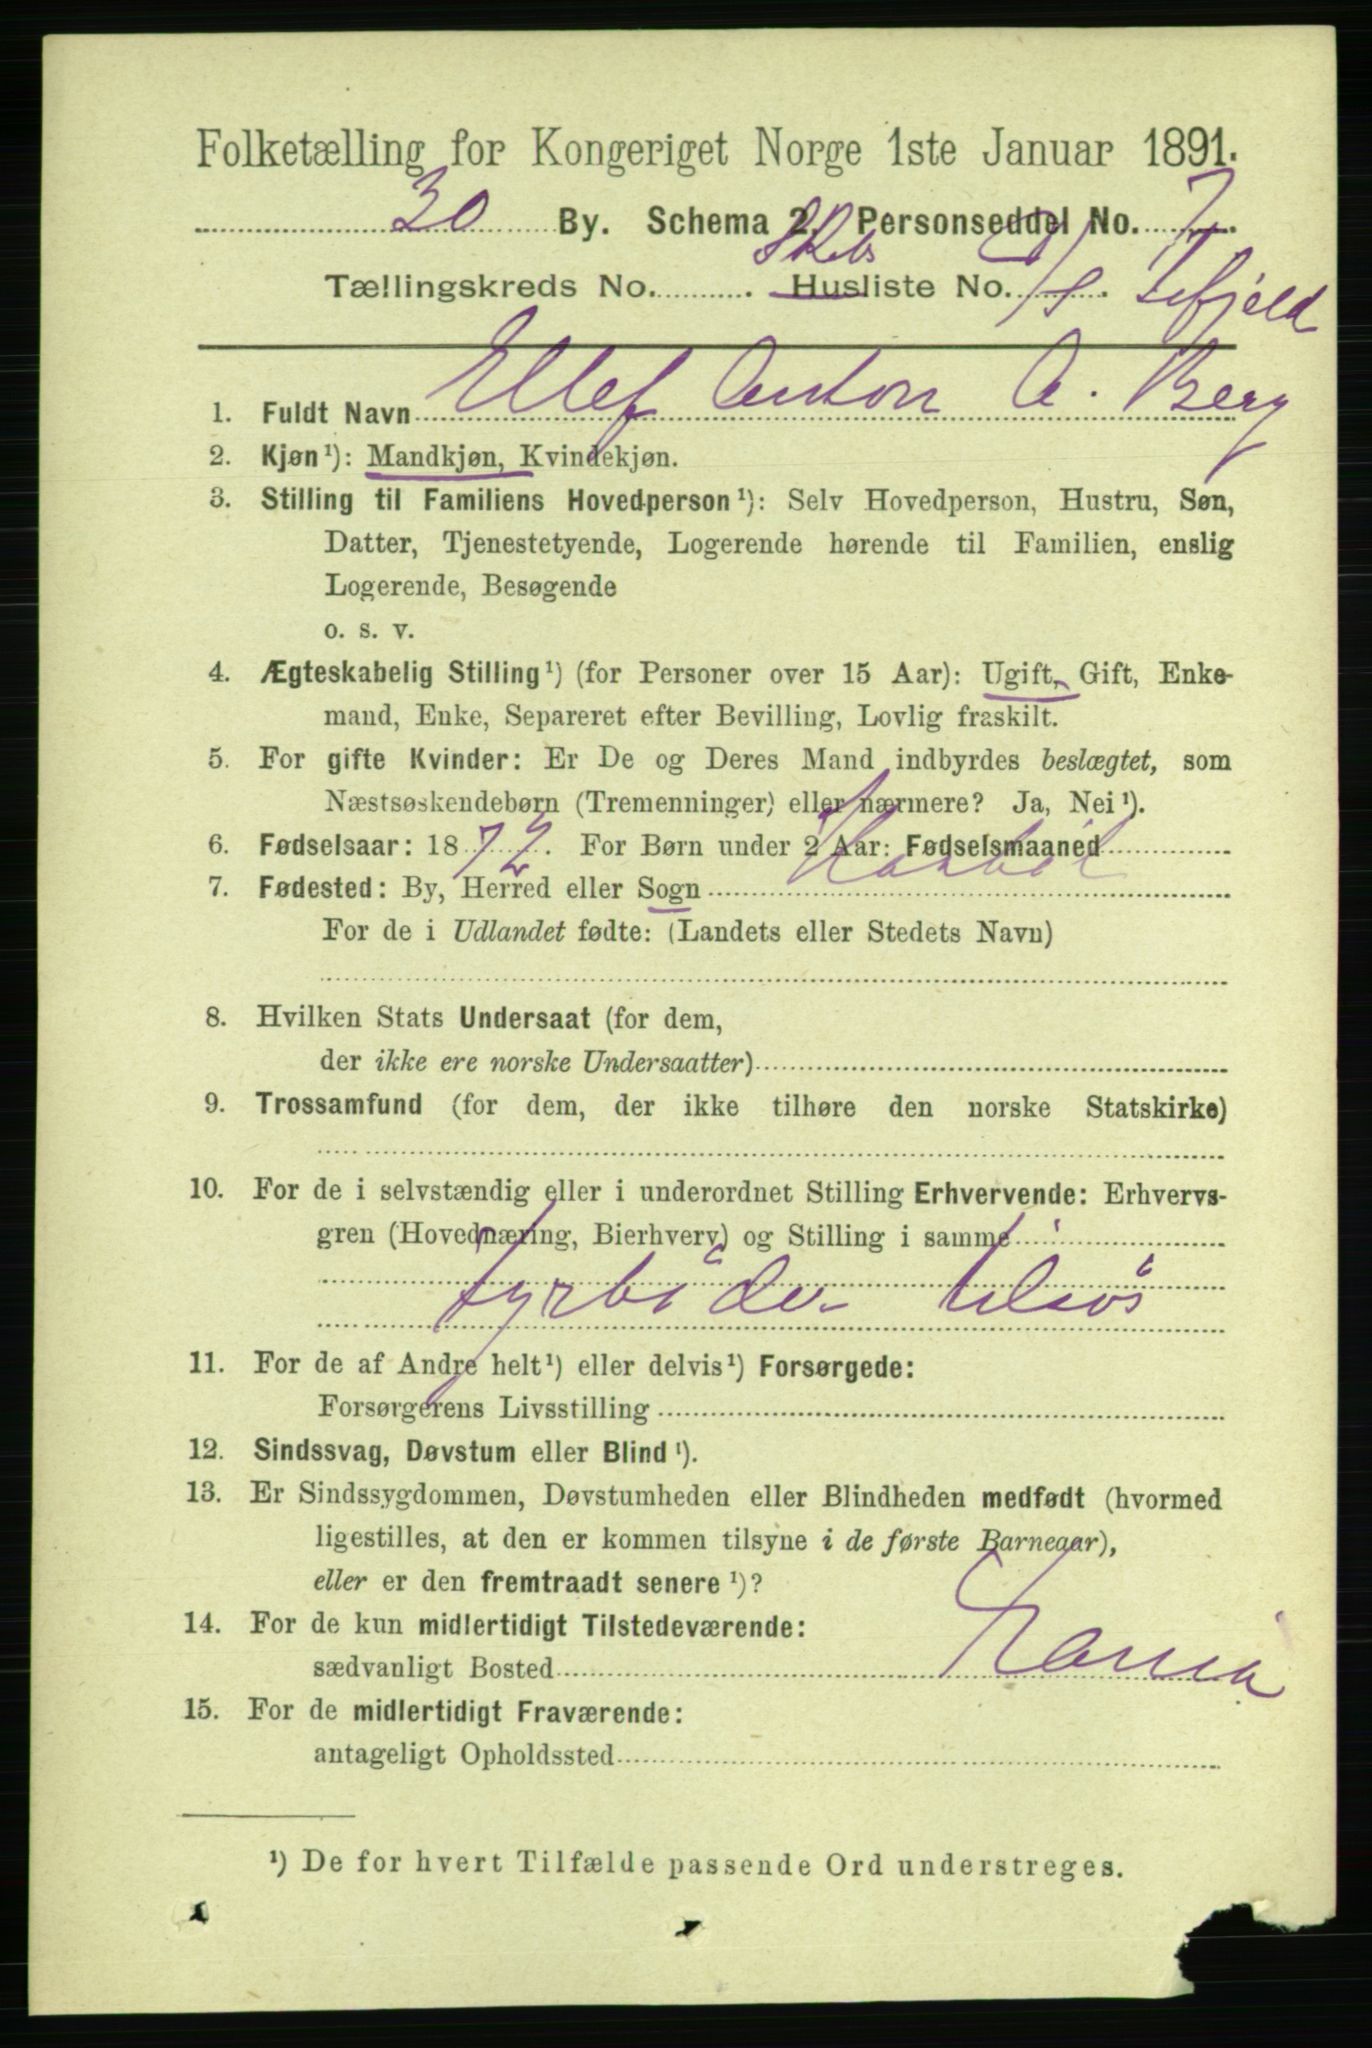 Folketælling for Kongeriget Norge 1ste Januar 1891.
30 By. Schema 2. Personseddel No. 7.
Tællingskreds No. . Skibs Husliste No. D/S Lefjeld
1. Fuldt Navn Ellef Anton A. Berg
2. Kjøn ¹): Mandkjøn, Kvindekjøn.
3. Stilling til Familiens Hovedperson ¹): Selv Hovedperson, Hustru, Søn,
Datter, Tjenestetyende, Logerende hørende til Familien, enslig
Logerende, Besøgende
o. s. v.
4. Ægteskabelig Stilling ¹) (for Personer over 15 Aar): Ugift, Gift, Enke-
mand, Enke, Separeret efter Bevilling, Lovlig fraskilt.
5. For gifte Kvinder: Er De og Deres Mand indbyrdes beslægtet, som
Næstsøskendebørn (Tremenninger) eller nærmere? Ja, Nei ¹).
6. Fødselsaar: 1872. For Børn under 2 Aar: Fødselsmaaned
7. Fødested: By, Herred eller Sogn
For de i Udlandet fødte: (Landets eller Stedets Navn)
8. Hvilken Stats Undersaat (for dem,
der ikke ere norske Undersaatter)
9. Trossamfund (for dem, der ikke tilhøre den norske Statskirke)
10. For de i selvstændig eller i underordnet Stilling Erhvervende: Erhvervs-
gren (Hovednæring, Bierhverv) og Stilling i samme
Fyrböder tilsös
11. For de af Andre helt ¹) eller delvis ¹) Forsørgede:
Forsørgerens Livsstilling
12. Sindssvag, Døvstum eller Blind ¹).
13. Er Sindssygdommen, Døvstumheden eller Blindheden medfødt (hvormed
ligestilles, at den er kommen tilsyne i de første Barneaar),
eller er den fremtraadt senere ¹)?
14. For de kun midlertidigt Tilstedeværende:
sædvanligt Bosted
15. For de midlertidigt Fraværende:
antageligt Opholdssted
¹) De for hvert Tilfælde passende Ord understreges.